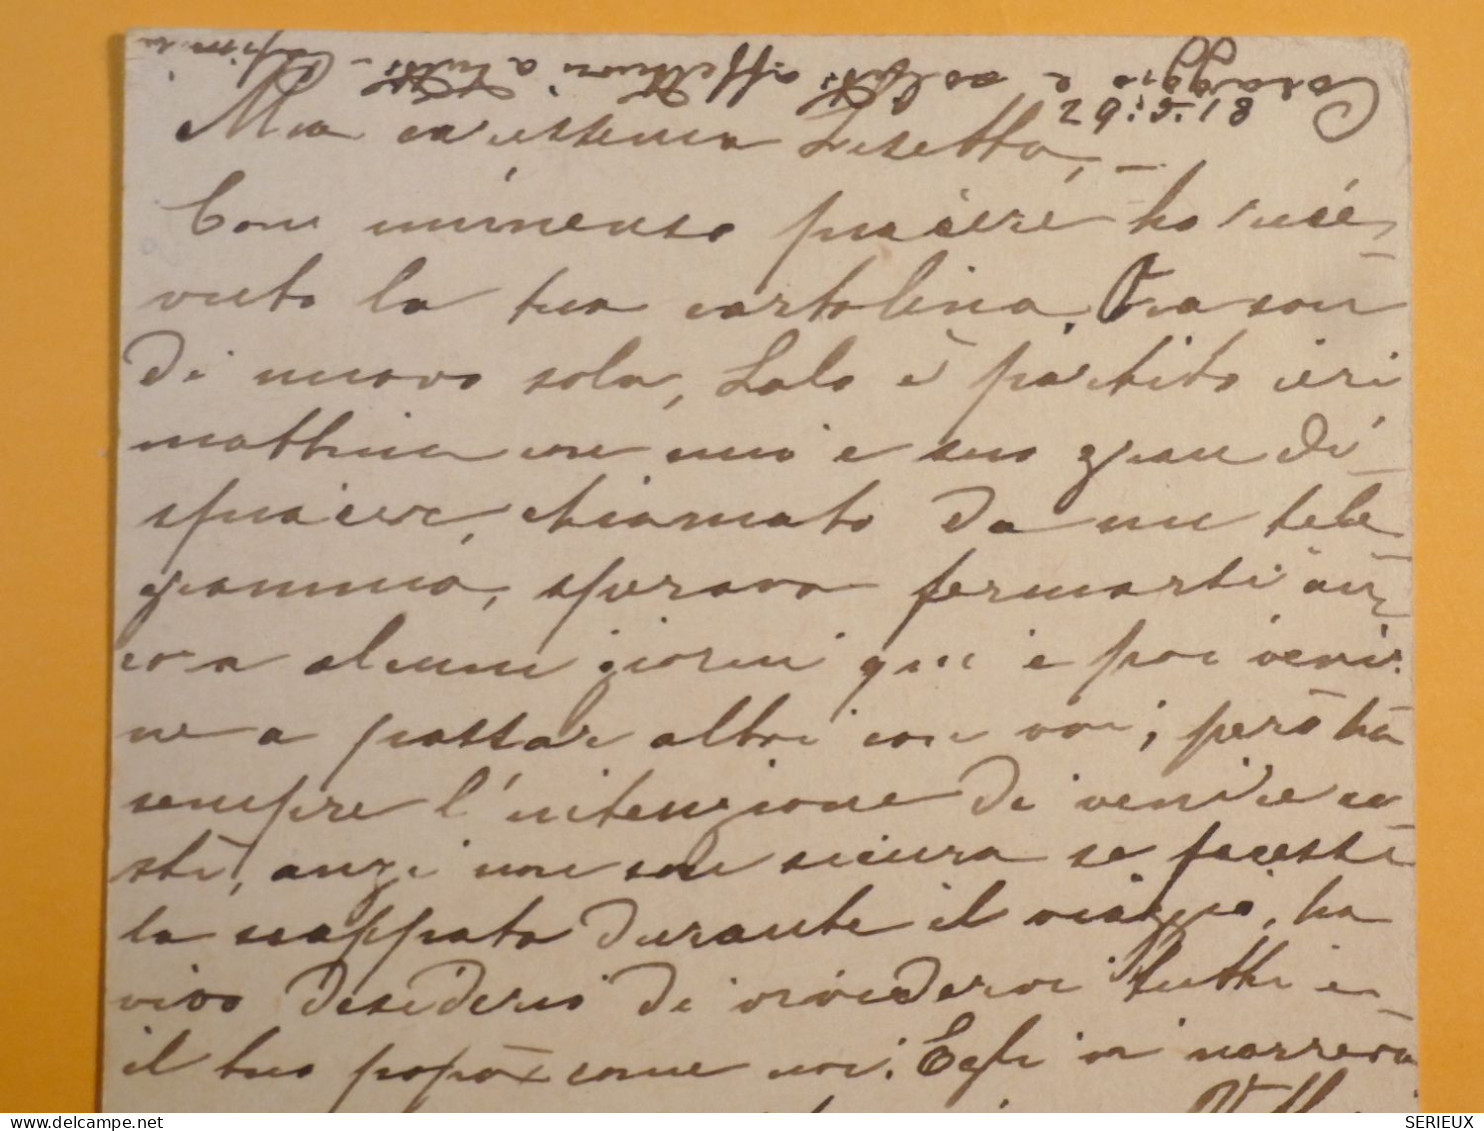 Coraggio e saluti affettuosi a tutti -
29.5.18
Mia carissima Lisetta, -
Con immenso piacere ho rice-
vuto la tua cartolina. Ora son
di nuovo sola, Lalo è partito ieri
mattina con mio e suo gran di-
spiacere, chiamato da un tele-
gramma, sperava fermarsi an-
cora alcuni giorni qui e poi veni-
re a passar altri con voi; però ha
sempre l'intenzione di venire co-
stì, anzi non son sicura se facesse
la scappata durante il viaggio, ha
vivo desiderio di rivedervi tutti e
il tuo popò come noi. Egli vi narrerà
SERIEUX